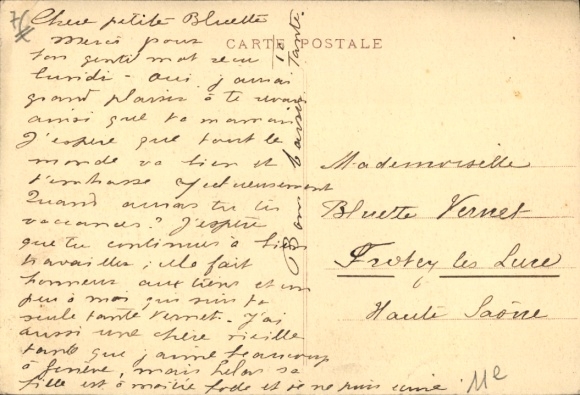 Chère petite Bluette
Merci pour
ton gentil mot reçu
lundi - Oui j'aurai
grand plaisir à te revoir
ainsi que ta maman
J'espère que tout le
monde va bien et
t'embrasse
Quand auras tu tes
vacances? J'espère
que tu continues à bien
travailler; cela fait
honneur aux tiens et un
peu à moi qui suis ta
seule tante Vernet - J'ai
aussi une chère vieille
tante que j'aime beaucoup
à Genève, mais hélas sa
fille est à moitié folle et je ne puis
Bons baisers
Tante
CARTE POSTALE
Mademoiselle
Bluette Vernet
Frotey les Lure
Haute Saône